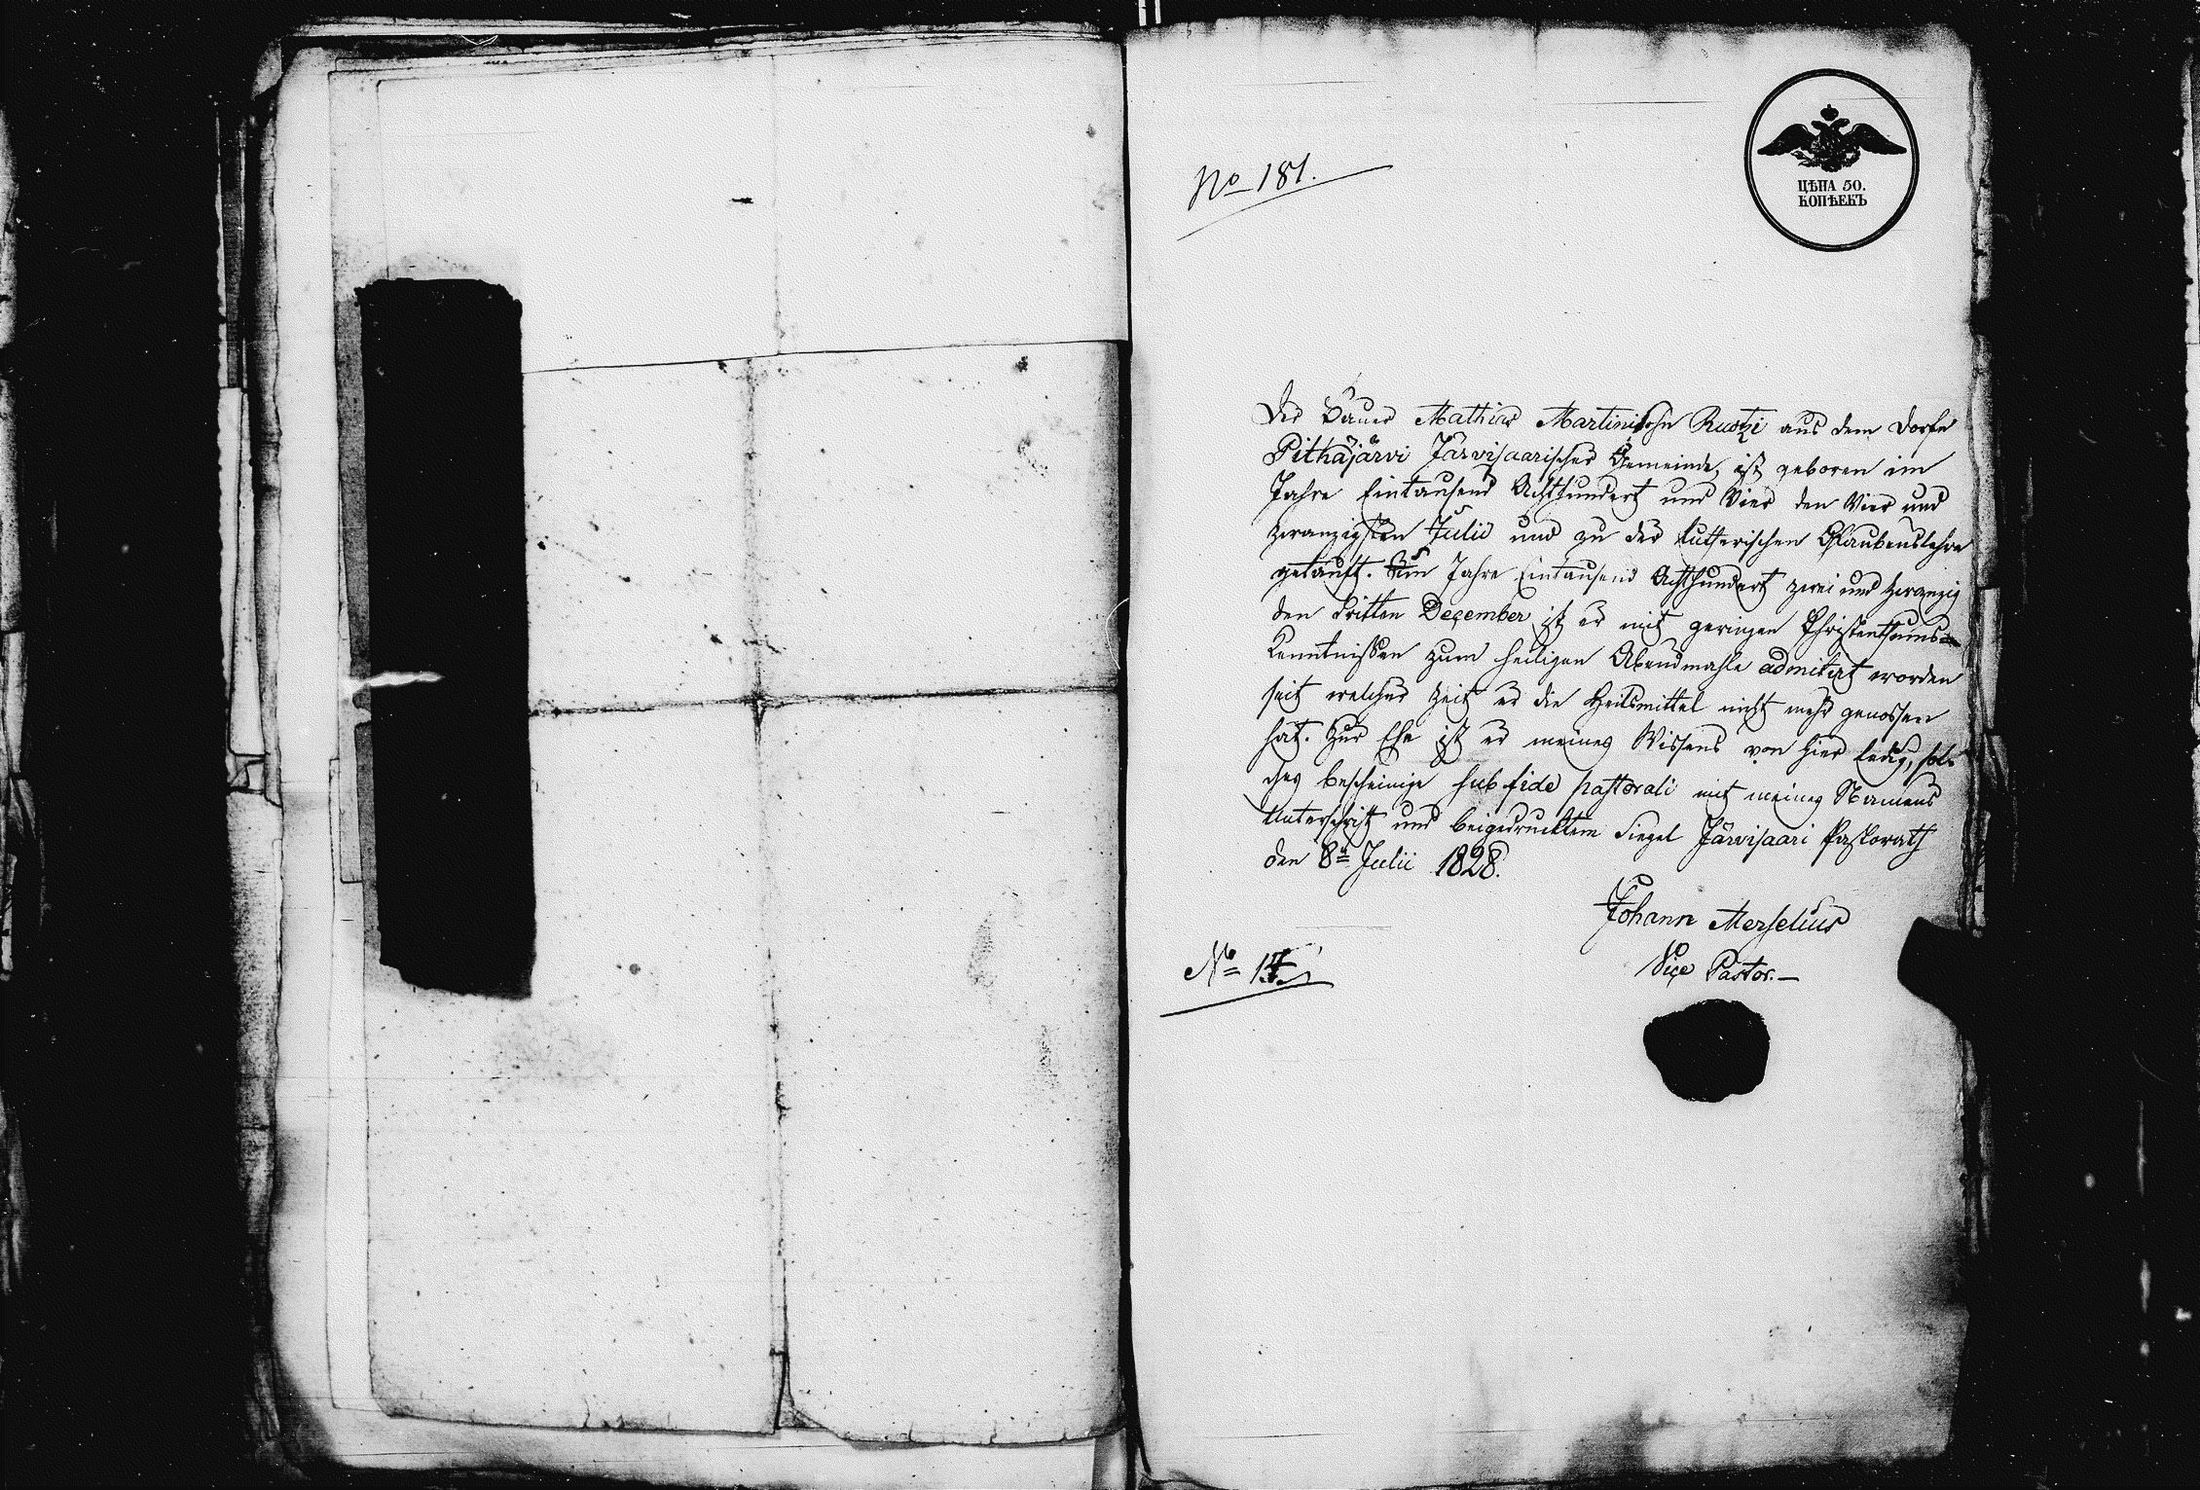 No 181.
ЦѢНА 50.
КОПѢЕКЪ
Der Bauer Mathias Martinssohn Ruotzi aus dem Dorfe
Pithäjärvi Järvisaarischer Gemeinde, ist geboren im
Jahre Eintausend Achthundert und Vier den Vier und
zwanzigsten Julii und zu der lutherischen Glaubenslehre
getauft. Im Jahre Eintausend Achthundert zwei und zwanzig
den dritten December ist er mit geringen Christenthums-
kenntnißen zum heiligen Abendmahle admitirt worden
seit welcher Zeit er die Heilsmittel nicht mehr genossen
hat. Zur Ehe ist er meines Wissens von hier ledig, sol-
ches bescheinige sub fide pastorali mit meines Namens
Unterschrift und beigedrucktem Siegel Järvisaari Pastorath
den 8ten Julii 1828.
Johann Merselius
Vice Pastor.—
No 17